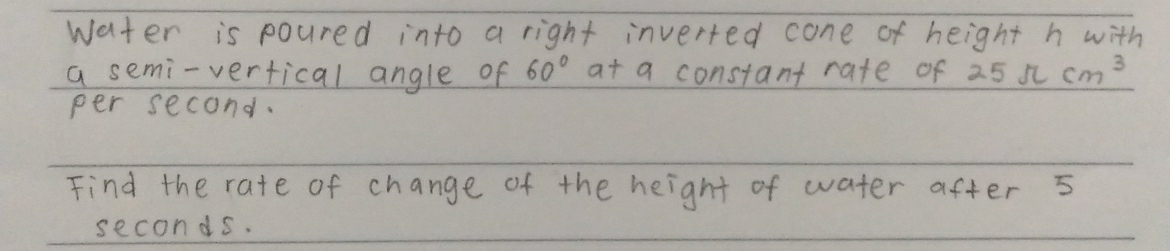 Water is poured into a right inverted cone of height h with
a semi-vertical angle of 60° at a constant rate of 25 π cm³
per second.
Find the rate of change of the height of water after 5
seconds.